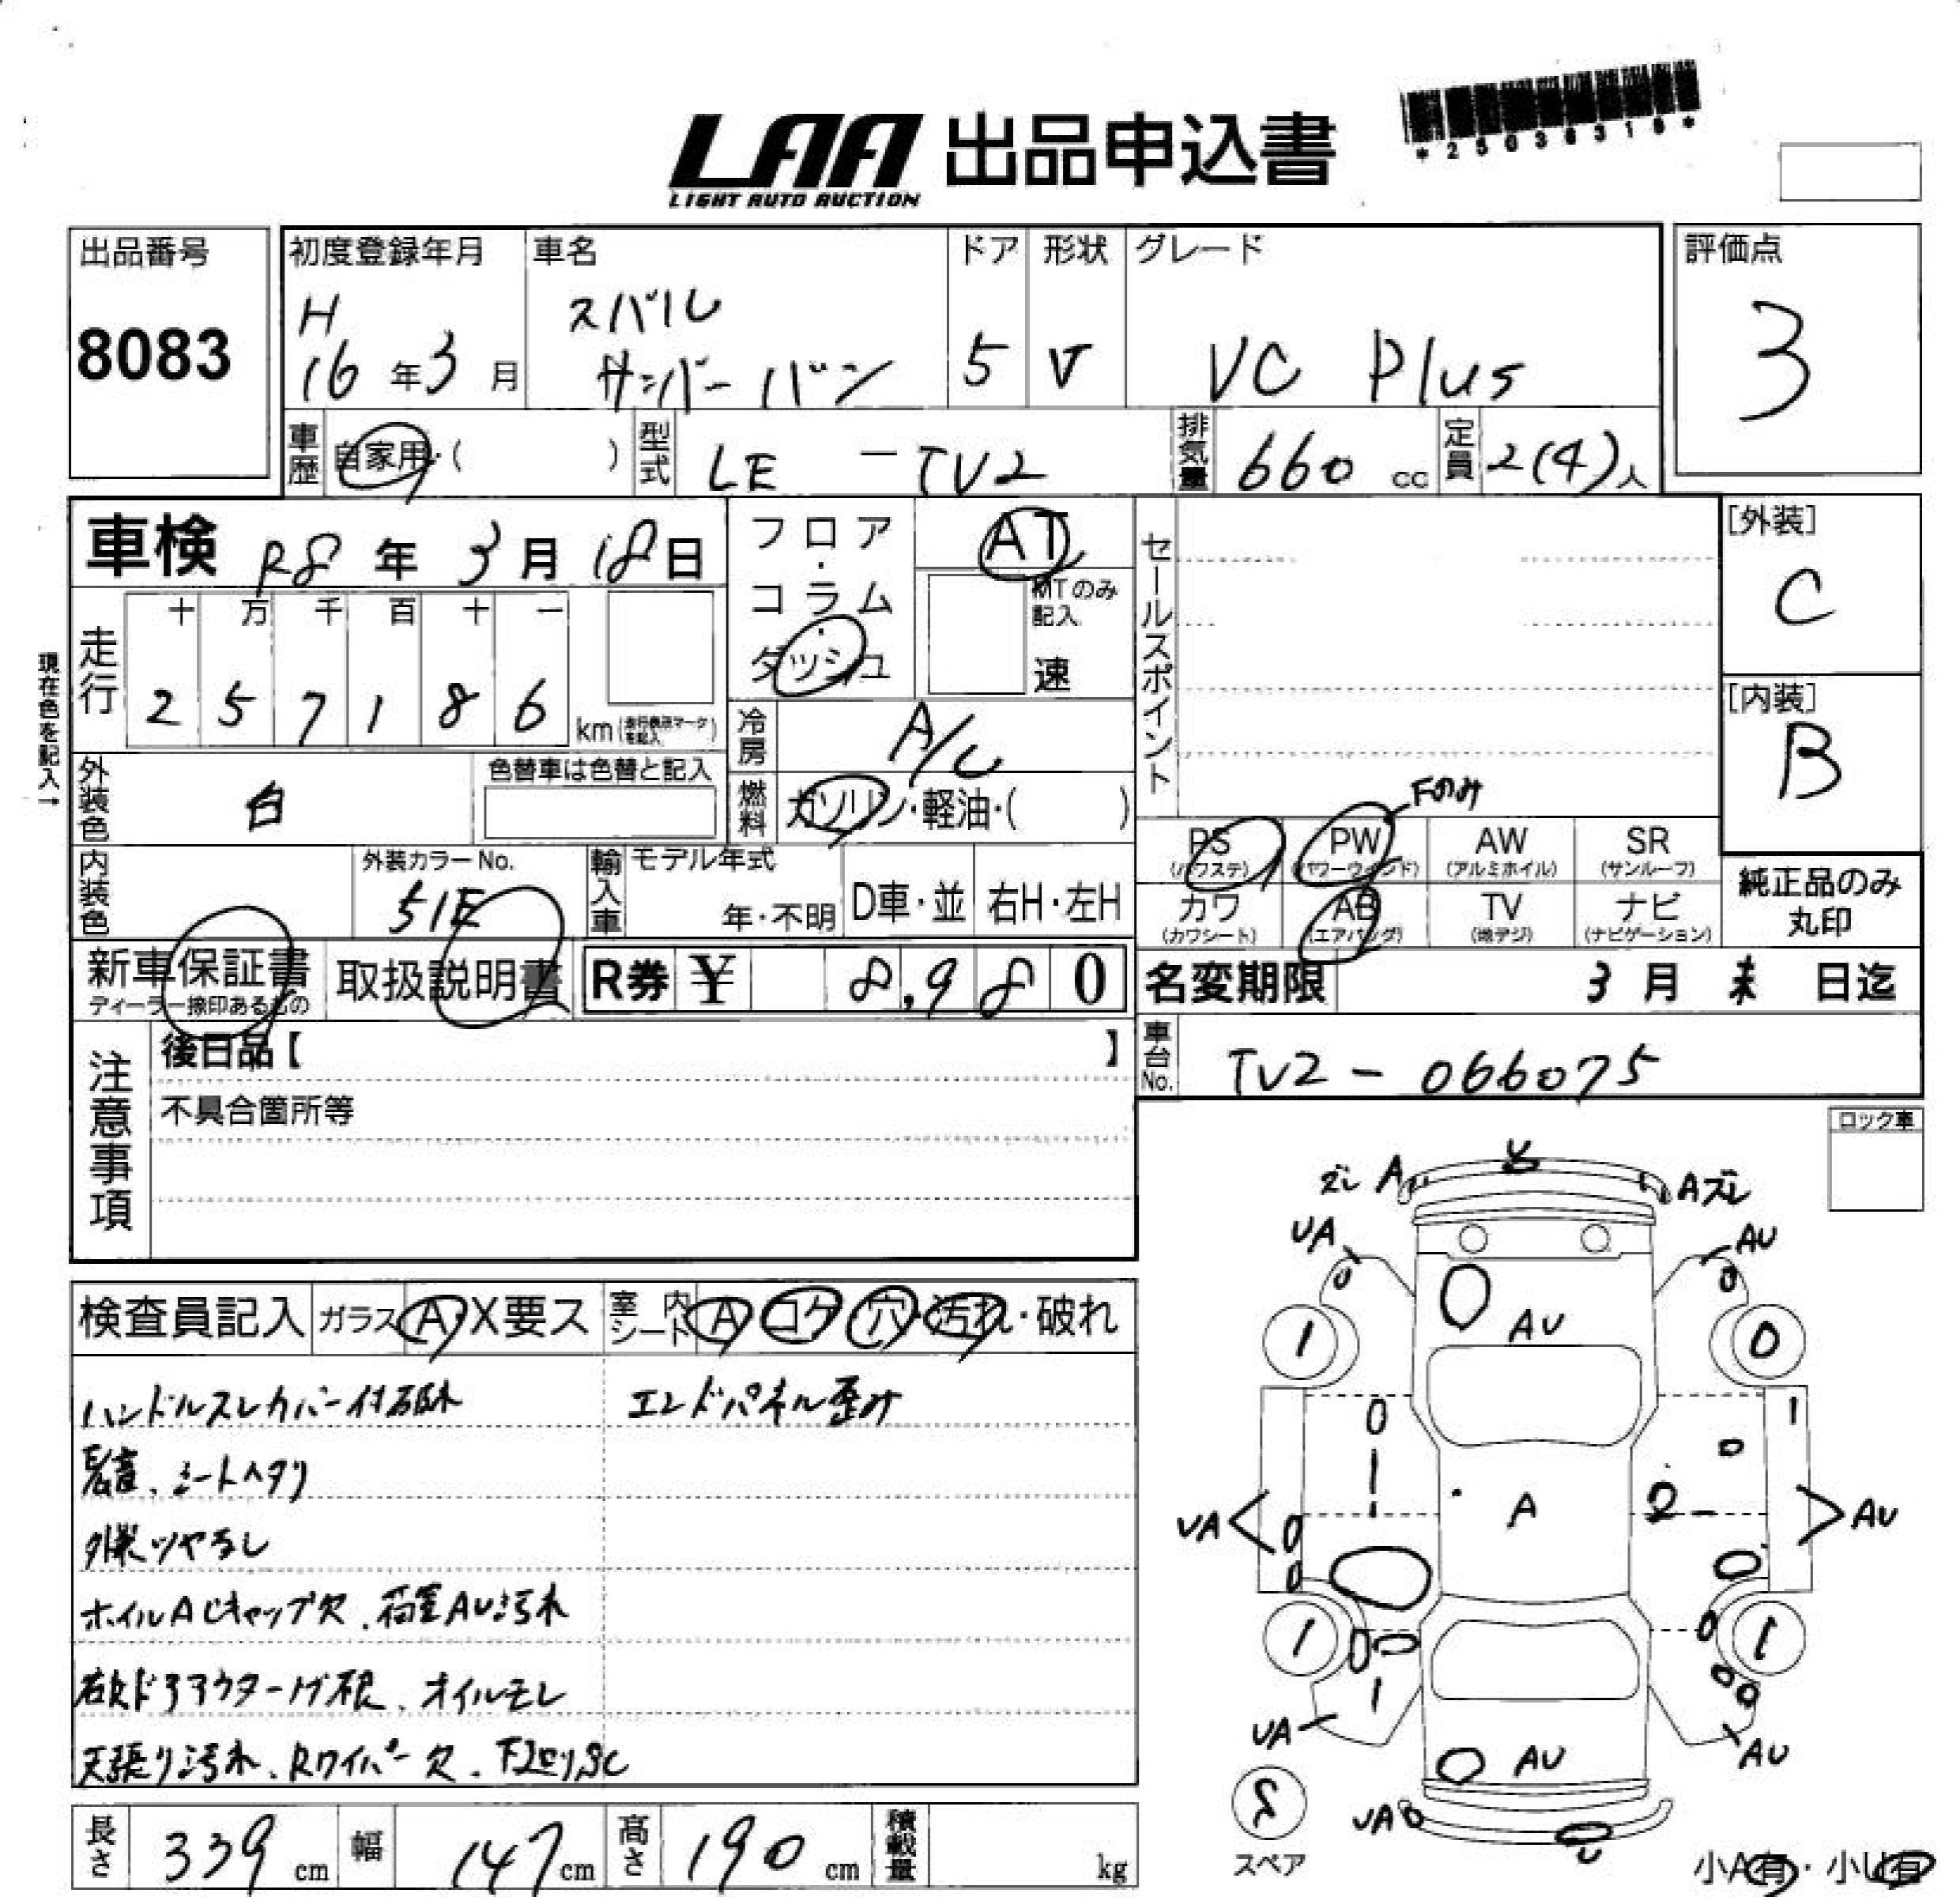 LAA 出品申込書
LIGHT AUTO AUCTION
*25036316*
出品番号
8083
初度登録年月
H
16年3月
車名
スバル
サンバーバン
ドア
5
形状
V
グレード
VC Plus
評価点
3
車歴 自家用・( )
型式 LE - TV2
排気量 660 cc
定員 2(4)人
車検 R8年 3月 18日
現在色を記入→
走行
十 万 千 百 十 一
2 5 7 1 8 6 km
フロア・コラム・ダッシュ
AT
MTのみ記入
速
冷房 A/C
燃料 ガソリン・軽油・( )
セールスポイント
[外装]
C
[内装]
B
外装色 白
色替車は色替と記入
内装色
外装カラーNo.
51E
輸入車 モデル年式
年・不明 D車・並 右H・左H
Fのみ
PS PW AW SR
(パワステ) (パワーウィンド) (アルミホイル) (サンルーフ)
カワ AB TV ナビ
(カワシート) (エアバッグ) (地デジ) (ナビゲーション)
純正品のみ
丸印
新車保証書
ディーラー捺印あるもの
取扱説明書
R券 ¥ 8,980
名変期限 3月 末 日迄
車台No. TV2 - 066075
注意事項
後日品【 】
不具合箇所等
ロック車
検査員記入 ガラス A・X要ス 室内シート A・コゲ・穴・汚れ・破れ
ハンドルスレカバー付
エンドパネル歪み
シートヘタリ
外装ツヤなし
ホイルACキャップ欠、荷室AU汚れ
オイルモレ
天張り汚れ、Rワイパー欠、下廻りSC
ズレ A
Y
Aズレ
UA
AU
AU
1
0
0
1
1
A
2
UA
AU
0
0
1
1
1
UA
AU
AU
S
UA
U
スペア
小A有・小U有
長さ 339 cm
幅 147 cm
高さ 190 cm
積載量 kg